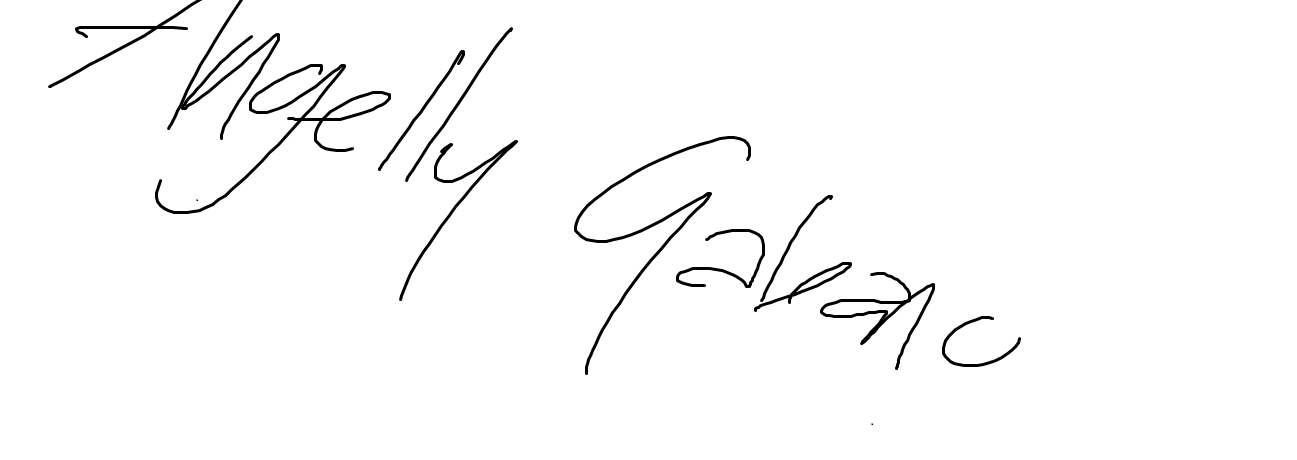 Angelly Gabano